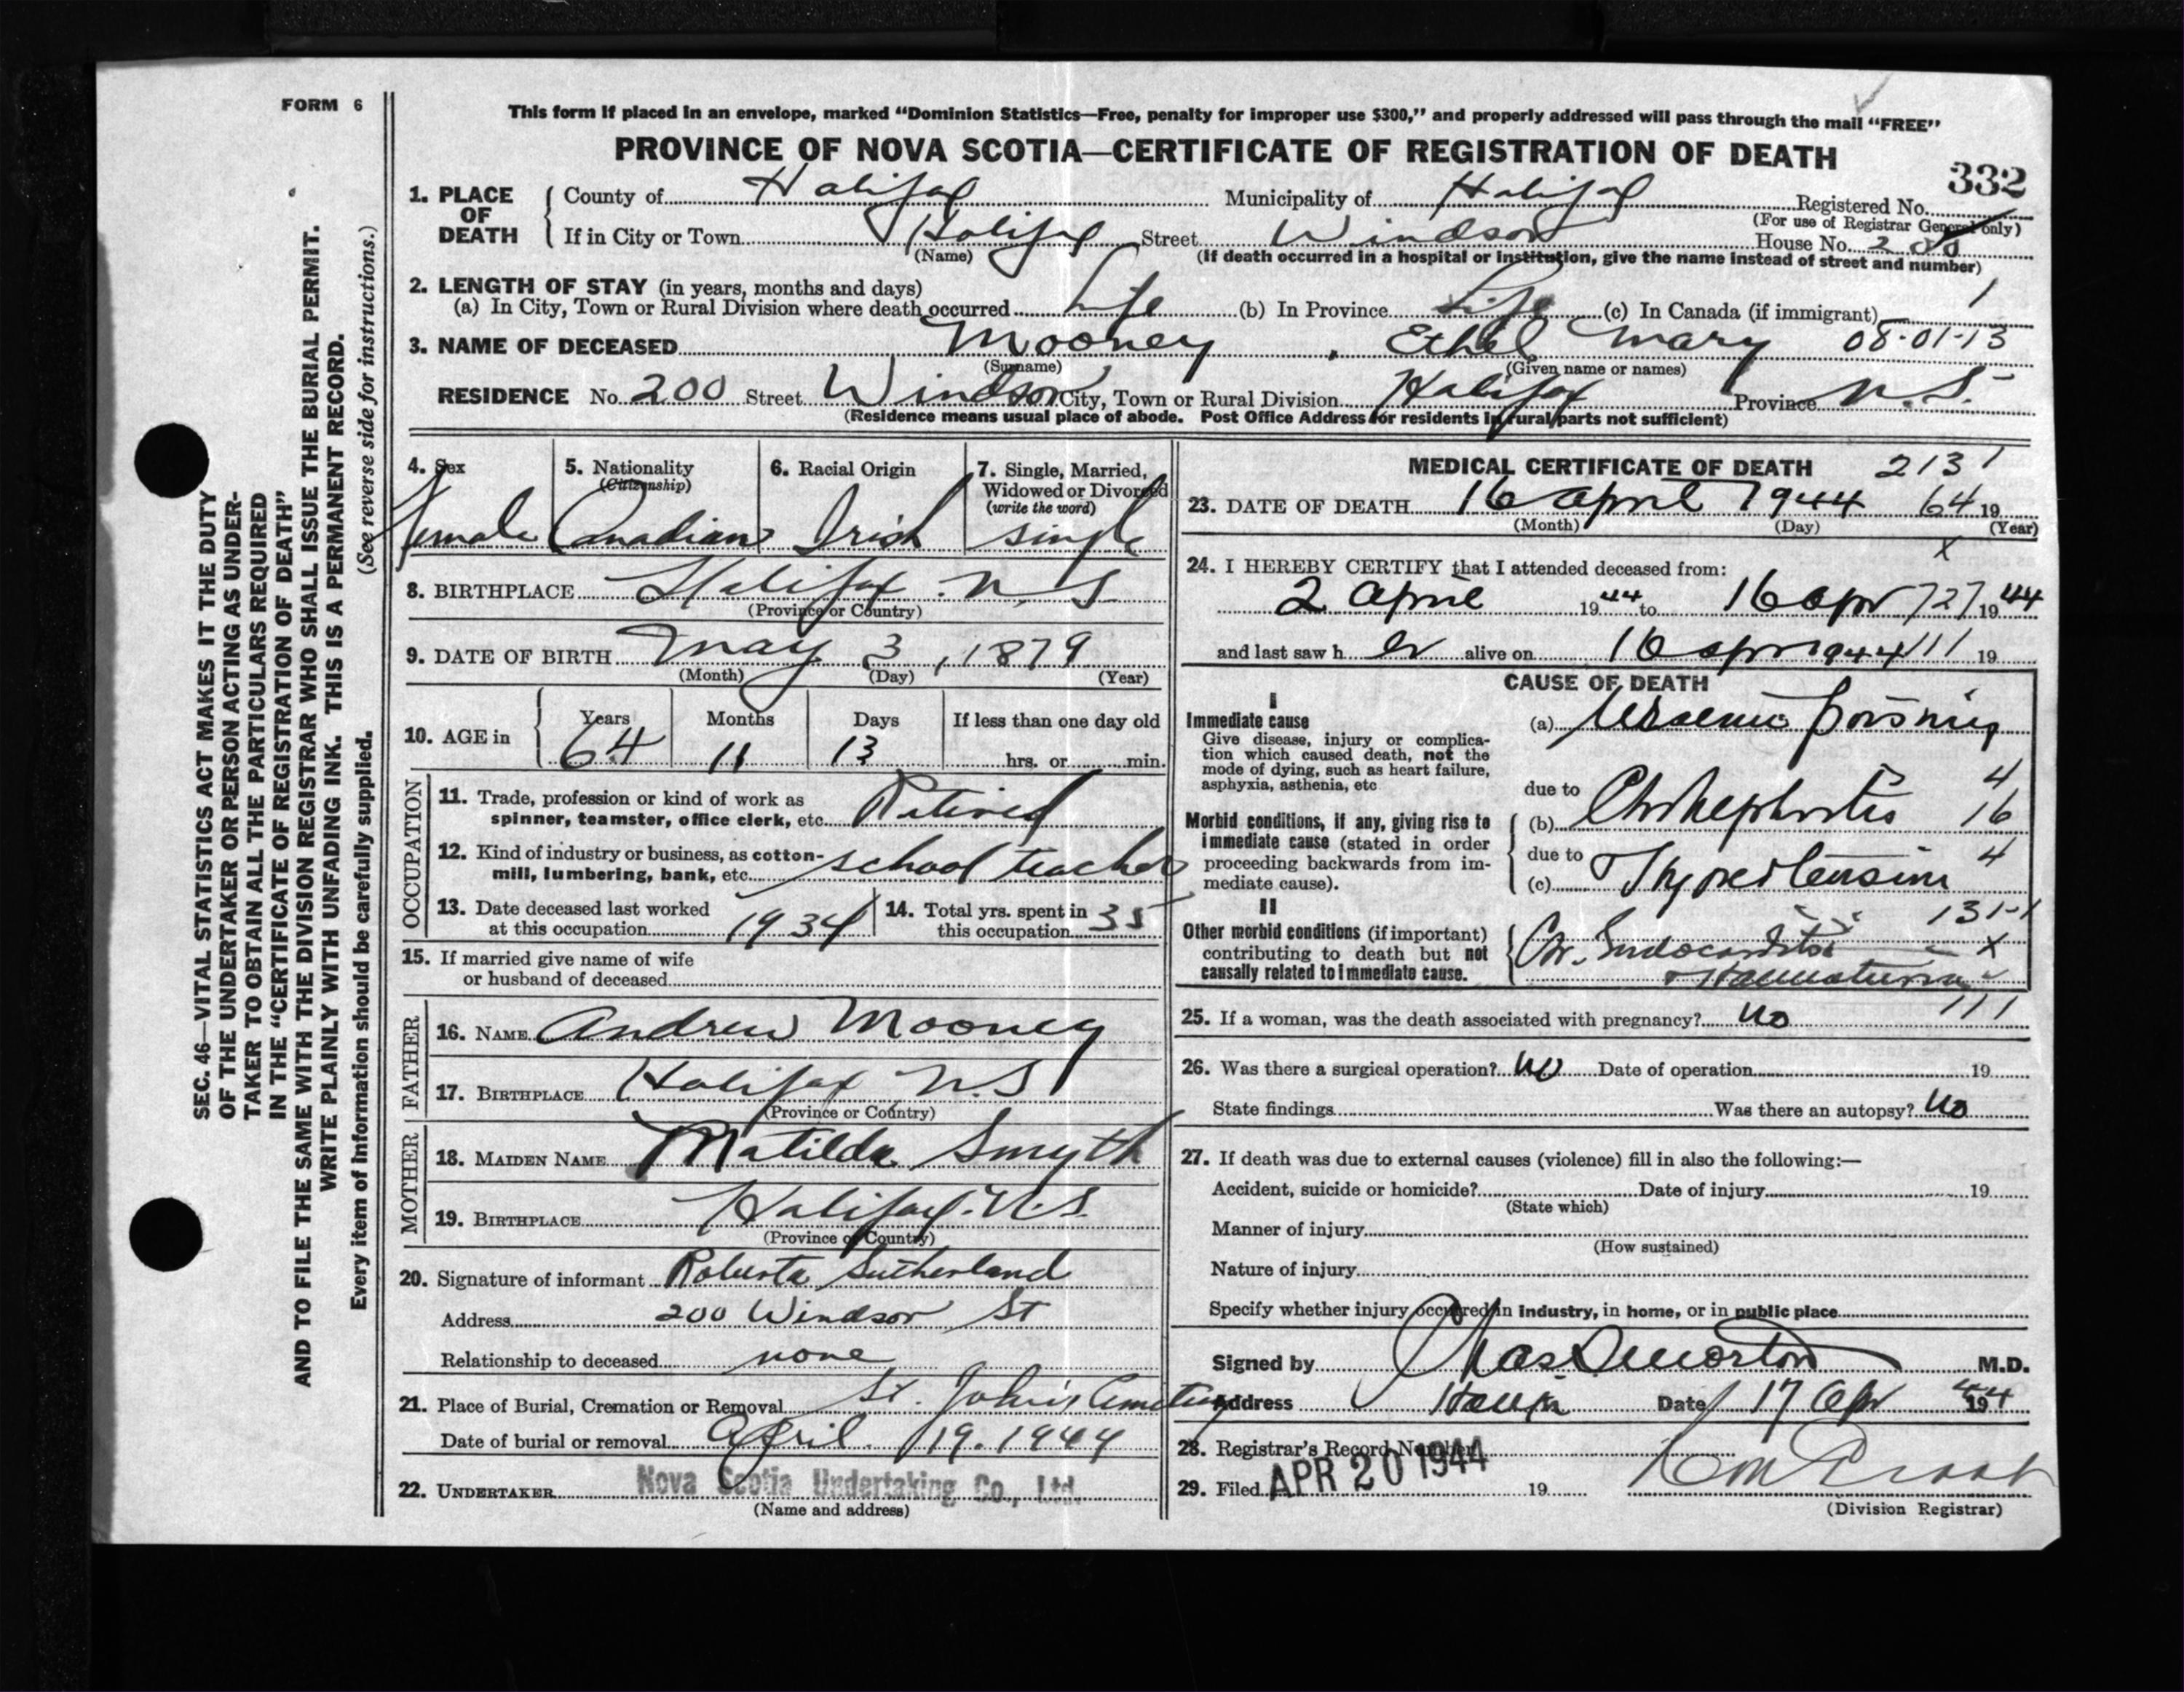 FORM 6
This form if placed in an envelope, marked "Dominion Statistics—Free, penalty for improper use $300," and properly addressed will pass through the mail "FREE"
PROVINCE OF NOVA SCOTIA—CERTIFICATE OF REGISTRATION OF DEATH
332
1. PLACE OF DEATH County of Halifax Municipality of Halifax Registered No.
(For use of Registrar General only)
If in City or Town Halifax Street Windsor House No. 200
(Name) (If death occurred in a hospital or institution, give the name instead of street and number)
2. LENGTH OF STAY (in years, months and days) 1
(a) In City, Town or Rural Division where death occurred Life (b) In Province Life (c) In Canada (if immigrant)
3. NAME OF DECEASED Mooney, Ethel Mary 08-01-13
(Surname) (Given name or names)
RESIDENCE No. 200 Street Windsor City, Town or Rural Division Halifax Province N.S.
(Residence means usual place of abode. Post Office Address for residents in rural parts not sufficient)
4. Sex 5. Nationality (Citizenship) 6. Racial Origin 7. Single, Married, Widowed or Divorced (write the word)
Female Canadian Irish Single
8. BIRTHPLACE Halifax N.S
(Province or Country)
9. DATE OF BIRTH May 3, 1879
(Month) (Day) (Year)
10. AGE in Years Months Days If less than one day old
64 11 13 hrs. or min.
OCCUPATION
11. Trade, profession or kind of work as
spinner, teamster, office clerk, etc. Retired
12. Kind of industry or business, as cotton-
mill, lumbering, bank, etc. School teacher
13. Date deceased last worked
at this occupation 1934
14. Total yrs. spent in
this occupation 35
15. If married give name of wife
or husband of deceased
FATHER
16. NAME Andrew Mooney
17. BIRTHPLACE Halifax N.S
(Province or Country)
MOTHER
18. MAIDEN NAME Matilda Smyth
19. BIRTHPLACE Halifax. N.S.
(Province or Country)
20. Signature of informant Roberta Sutherland
Address 200 Windsor St
Relationship to deceased none
21. Place of Burial, Cremation or Removal St. John's Cemetery
Date of burial or removal April. 19. 1944
22. UNDERTAKER Nova Scotia Undertaking Co., Ltd.
(Name and address)
MEDICAL CERTIFICATE OF DEATH 2131
23. DATE OF DEATH 16 April 1944 64 19
(Month) (Day) (Year)
x
24. I HEREBY CERTIFY that I attended deceased from:
2 April 1944 to 16 Apr 727 1944
and last saw her alive on 16 Apr 1944 111 19
CAUSE OF DEATH
I
Immediate cause
Give disease, injury or complica-
tion which caused death, not the
mode of dying, such as heart failure,
asphyxia, asthenia, etc
(a) Uraemic poisoning
due to 4
Morbid conditions, if any, giving rise to
immediate cause (stated in order
proceeding backwards from im-
mediate cause).
(b) Chr Nephritis 16
due to 4
(c) Hypertension
II
Other morbid conditions (if important)
contributing to death but not
causally related to immediate cause.
131-1
Chr. Endocarditis x
Haematuria
111
25. If a woman, was the death associated with pregnancy? No
26. Was there a surgical operation? No Date of operation 19
State findings Was there an autopsy? No
27. If death was due to external causes (violence) fill in also the following:—
Accident, suicide or homicide? Date of injury 19
(State which)
Manner of injury
(How sustained)
Nature of injury
Specify whether injury occurred in industry, in home, or in public place
Signed by Chas Morton M.D.
Address Date 17 Apr 1944
28. Registrar's Record Number
29. Filed APR 20 1944 19
(Division Registrar)
SEC. 46—VITAL STATISTICS ACT MAKES IT THE DUTY
OF THE UNDERTAKER OR PERSON ACTING AS UNDER-
TAKER TO OBTAIN ALL THE PARTICULARS REQUIRED
IN THE "CERTIFICATE OF REGISTRATION OF DEATH"
AND TO FILE THE SAME WITH THE DIVISION REGISTRAR WHO SHALL ISSUE THE BURIAL PERMIT.
WRITE PLAINLY WITH UNFADING INK. THIS IS A PERMANENT RECORD.
Every item of information should be carefully supplied. (See reverse side for instructions.)